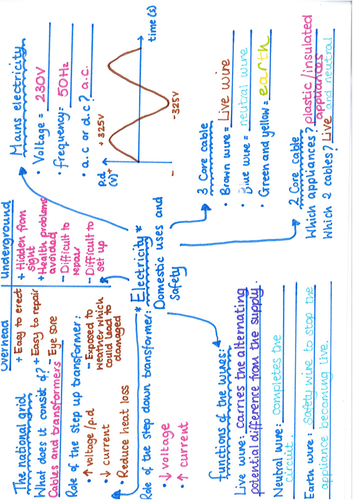 The national grid
What does it consist of?
Cables and transformers
Overhead
+ Easy to erect
+ Easy to repair
- Eye sore
- Exposed to
weather which
could lead to
damaged
Underground
+ Hidden from
sight
+ Health problems
avoided
- Difficult to
repair
- Difficult to
set up
Mains electricity
• Voltage = 230V
• frequency = 50Hz
• a.c or d.c? a.c.
p.d
(V)
+ 325V
-325V
time (s)
Role of the step up transformer:
• ↑ voltage / p.d
↓ current
• Reduce heat loss
Role of the step down transformer:
• ↓ voltage
• ↑ current
* Electricity *
Domestic uses and
Safety
3 Core cable
• Brown wire = Live wire
• Blue wire = neutral wire
• Green and yellow = earth
2 Core cable
Which appliances? plastic/insulated
appliances
Which 2 cables? Live and neutral
Functions of the wires:
Live wire: carries the alternating
potential difference from the supply.
Neutral wire: completes the
circuit.
Earth wire: safety wire to stop the
appliance becoming live.